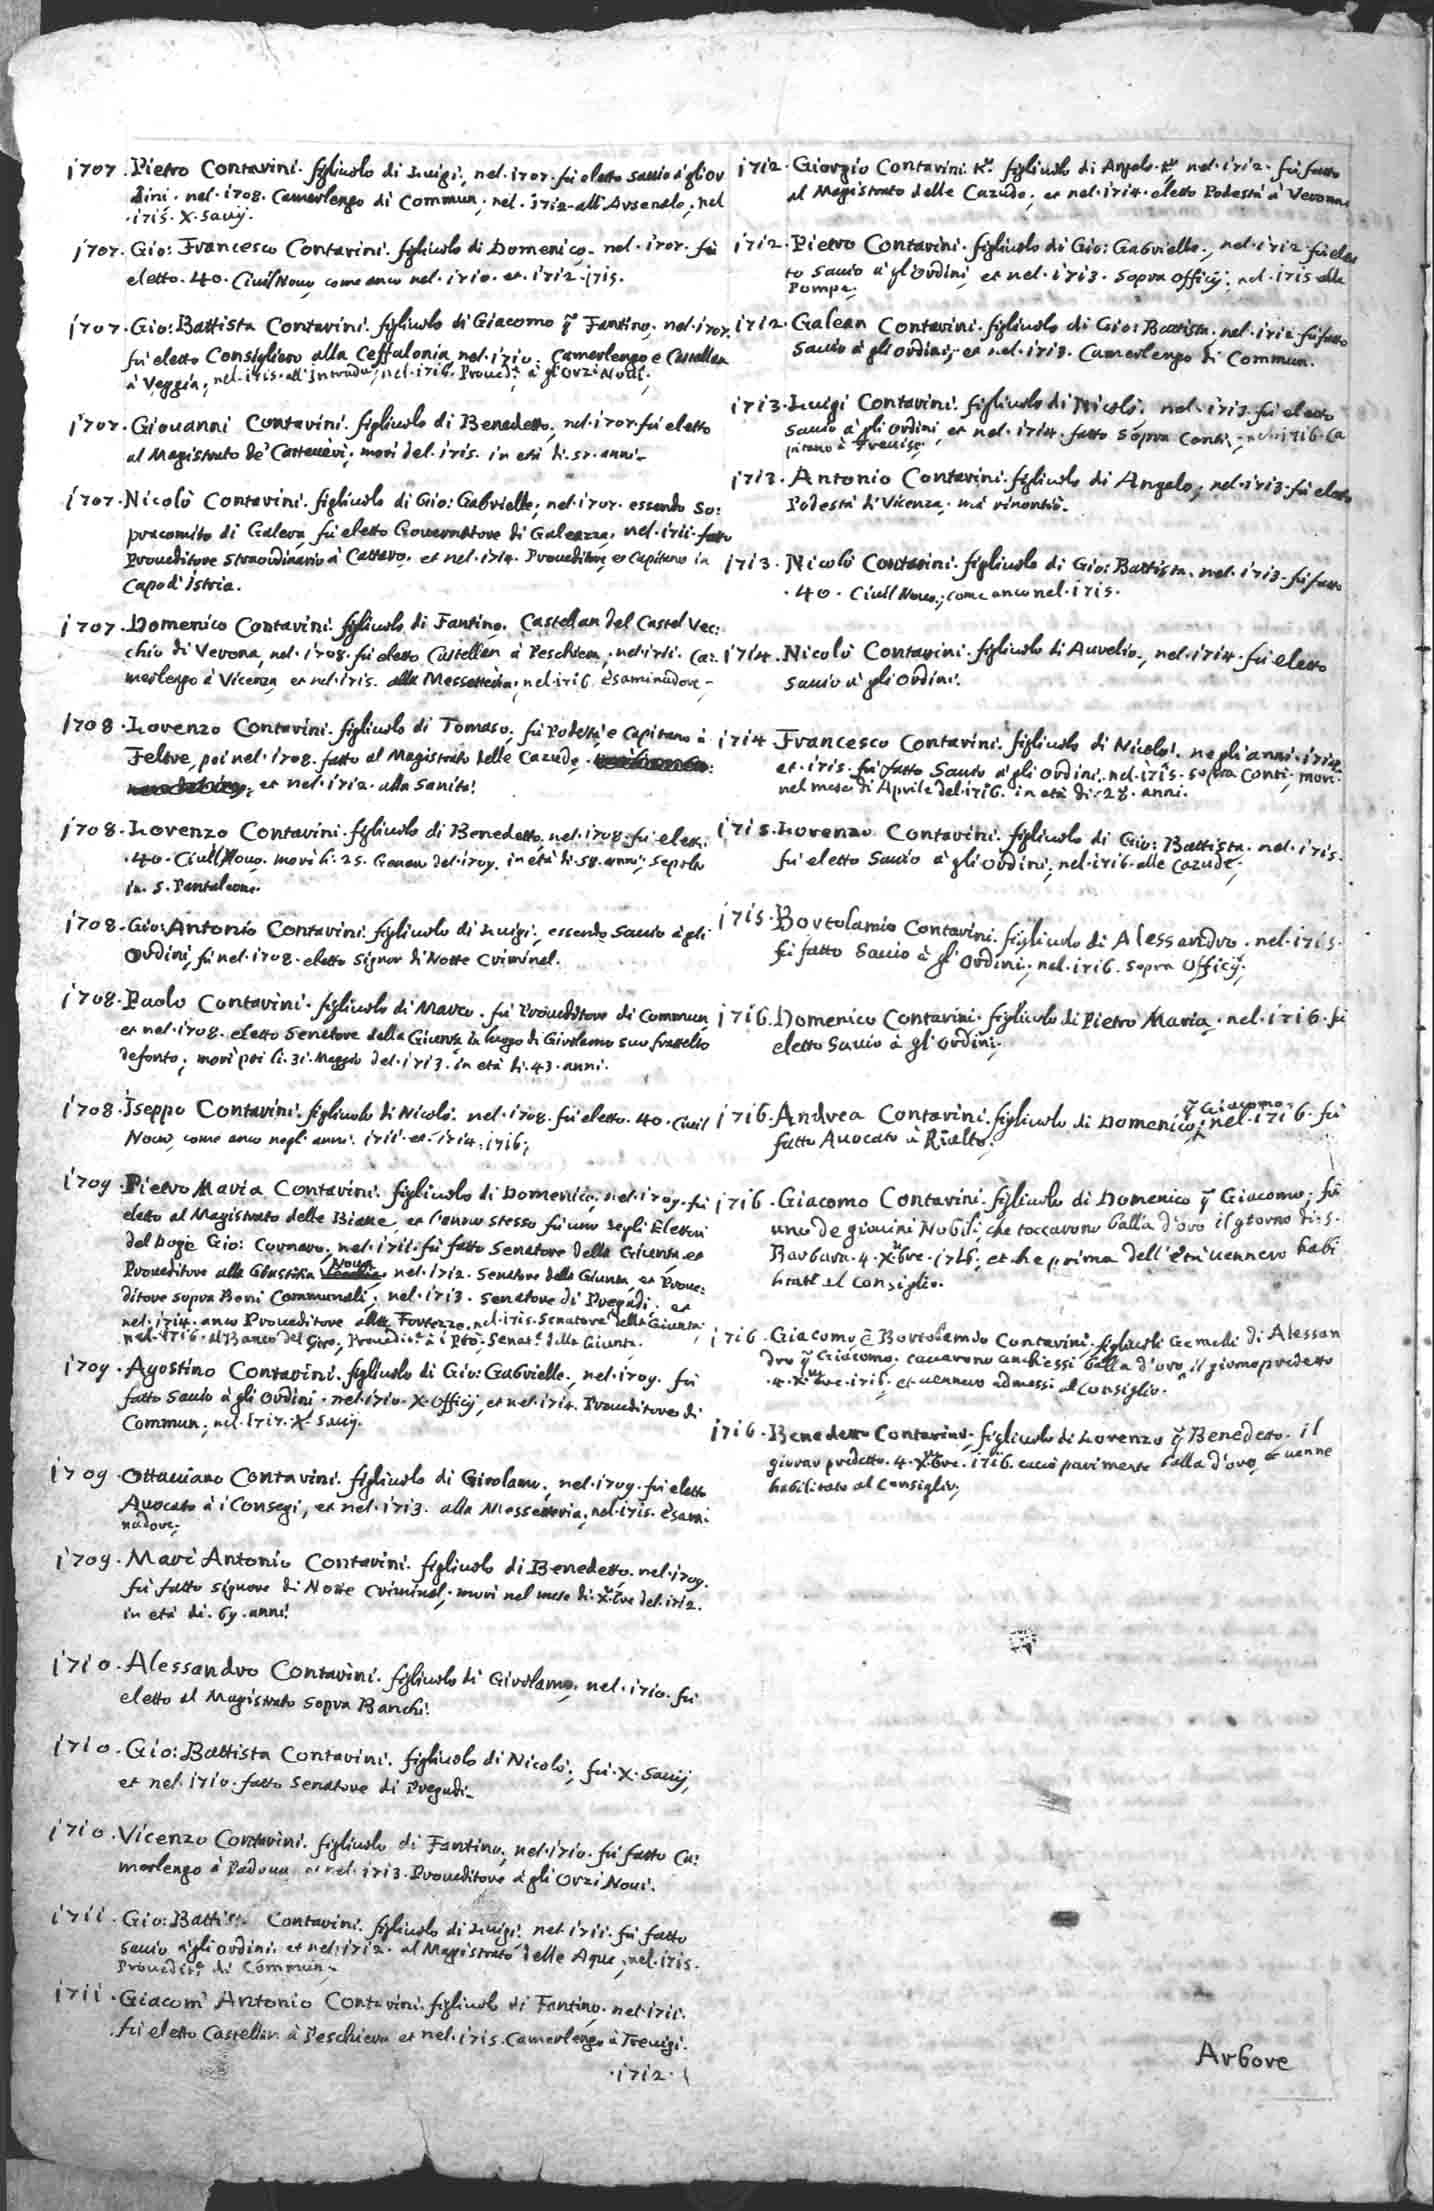 1707. Pietro Contarini. figliuolo di Luigi, nel. 1707. fù eletto Sauio à gli or
dini. nel. 1708. Camerlengo di Commun, nel. 1712. all'Arsenale, nel
.1715. X. Sauij.
1707. Gio: Francesco Contarini. figliuolo di Domenico. nel. 1707. fù
eletto. 40. Ciuil Nouo, come anco nel. 1710. et. 1712. 1715.
1707. Gio: Battista Contarini. figliuolo di Giacomo q Fantino. nel. 1707.
fù eletto Consigliero alla Ceffalonia, nel. 1710. Camerlengo e Castellan
à Veggia, nel. 1715. all'Intrade, nel. 1716. Proued.r à gli Orzi Noui.
1707. Giouanni Contarini. figliuolo di Benedetto, nel. 1707. fù eletto
al Magistrato de' Cattaueri, morì del. 1715. in età di. 57. anni.
1707. Nicolò Contarini. figliuolo di Gio: Gabrielle, nel. 1707. essendo So:
pracomito di Galera, fù eletto Gouernatore di Galeazza, nel. 1711. fatto
Proueditore Straordinario à Cattaro. et nel. 1714. Proueditore e Capitano in
Capo d'Istria.
1707. Domenico Contarini. figliuolo di Fantino. Castellan del Castel Vec:
chio di Verona, nel. 1708. fù eletto Castellan à Peschiera, nel. 1711. Ca:
merlengo à Vicenza, et nel. 1715. alla Messetteria, nel. 1716. Esaminadore
1708. Lorenzo Contarini. figliuolo di Tomaso, fù Podestà e Capitano à
Feltre, poi nel. 1708. fatto al Magistrato delle Cazude,
et nel. 1712. alla Sanità.
1708. Lorenzo Contarini. figliuolo di Benedetto, nel. 1708. fù elett:
.40. Ciuil Nouo, morì li. 25. Genaro del. 1709. in età di. 58. anni, Sepolto
in. S. Pantaleone.
1708. Gio: Antonio Contarini. figliuolo di Luigi, essendo Sauio à gli
Ordini, fù nel. 1708. eletto Signor di Notte Criminal.
1708. Paolo Contarini. figliuolo di Marco. fù Proueditore di Commun,
et nel. 1708. eletto Senatore della Giunta in luogo di Girolamo suo frattello
defonto, morì poi li. 31. Maggio del. 1713. in età di. 43. anni.
1708. Iseppo Contarini. figliuolo di Nicolò. nel. 1708. fù eletto. 40. Ciuil
Nouo, come anco negli anni. 1711. et. 1714. 1716.
1709. Pietro Maria Contarini. figliuolo di Domenico, nel. 1709. fù
eletto al Magistrato delle Biaue, et l'anno stesso fù uno degli Elettori
del Doge Gio: Cornaro, nel. 1711. fù fatto Senatore della Giunta, et
Proueditore alla Giustitia Noua, nel. 1712. Senatore della Giunta et Proue:
ditore sopra Beni Communali, nel. 1713. Senatore di Pregadi. et
nel. 1714. anco Proueditore alle Fortezze, nel. 1715. Senatore della Giunta,
nel. 1716. al Banco del Giro, Proueditr à i Prò, Senat.e della Giunta.
1709. Agostino Contarini. figliuolo di Gio: Gabrielle, nel. 1709. fù
fatto Sauio à gli Ordini. nel. 1710. X. Officij, et nel. 1714. Proueditore di
Commun, nel. 1717. X. Sauij.
1709. Ottauiano Contarini. figliuolo di Girolamo, nel. 1709. fù eletto
Auocato à i Consegi, et nel. 1713. alla Messetteria, nel. 1715. Esami
nadore.
1709. Marc'Antonio Contarini. figliuolo di Benedetto. nel. 1709.
fù fatto Signore di Notte Criminal, morì nel mese di. Xbre del. 1712.
in età di. 69. anni.
1710. Alessandro Contarini. figliuolo di Girolamo. nel. 1710. fù
eletto al Magistrato sopra Banchi.
1710. Gio: Battista Contarini. figliuolo di Nicolò, fù. X. Sauij,
et nel. 1710. fatto Senatore di Pregadi.
1710. Vicenzo Contarini. figliuolo di Fantino, nel. 1710. fù fatto Ca:
merlengo à Padoua et nel. 1713. Proueditore à gli Orzi Noui.
1711. Gio: Battista Contarini. figliuolo di Luigi. nel. 1711. fù fatto
Sauio à gli ordini. et nel. 1712. al Magistrato delle Aque, nel. 1715.
Proueditr di Commun.
1711. Giacom'Antonio Contarini. figliuolo di Fantino. nel. 1711.
fù eletto Castellan à Peschiera et nel. 1715. Camerlengo à Treuigi.
.1712.
1712. Giorgio Contarini. Kr. figliuolo di Angelo. Kr. nel. 1712. fù fatto
al Magistrato delle Cazude, et nel. 1714. eletto Podestà à Verona
1712. Pietro Contarini. figliuolo di Gio: Gabrielle, nel. 1712. fù elet
to Sauio à gli Ordini, et nel. 1713. Sopra Officij, nel. 1715. alle
Pompe.
1712. Galean Contarini. figliuolo di Gio: Battista, nel. 1712. fù fatto
Sauio à gli ordini, et nel. 1713. Camerlengo di Commun.
1713. Luigi Contarini. figliuolo di Nicolò. nel. 1713. fù eletto
Sauio à gli Ordini, et nel. 1714. fatto Sopra Conti, nel. 1716. Ca
pitano à Treuiso.
1713. Antonio Contarini. figliuolo di Angelo, nel. 1713. fù eletto
Podestà di Vicenza, mà rinontiò.
1713. Nicolò Contarini. figliuolo di Gio: Battista. nel. 1713. fù fatto
.40. Ciuil Nouo, come anco nel. 1715.
1714. Nicolò Contarini. figliuolo di Aurelio, nel. 1714. fù eletto
Sauio à gli Ordini.
1714 Francesco Contarini. figliuolo di Nicolò. negli anni. 1714.
et. 1715. fù fatto Sauio à gli Ordini. nel. 1715. sopra Conti, morì
nel mese di Aprile del. 1716. in età di. 28. anni.
1715. Lorenzo Contarini. figliuolo di Gio: Battista. nel. 1715.
fù eletto Sauio à gli Ordini, nel. 1716. alle Cazude.
1715. Bortolamio Contarini. figliuolo di Alessandro. nel. 1715.
fù fatto Sauio à gl'Ordini, nel. 1716. sopra Officij.
1716. Domenico Contarini. figliuolo di Pietro Maria. nel. 1716. fù
eletto Sauio à gl'Ordini.
1716. Andrea Contarini. figliuolo di Domenico q Giacomo, nel. 1716. fù
fatto Auocato à Rialto.
1716. Giacomo Contarini. figliuolo di Domenico q Giacomo, fù
uno de giouini Nobili, che toccarono balla d'oro il giorno di. S.
Barbara. 4. Xbre. 1716. et che prima dell'età uennero habi
litati al Consiglio.
1716. Giacomo, e Bortolamio Contarini, figliuoli Gemelli di Alessan
dro q Giacomo. cauarono anch'essi balla d'oro, il giorno predetto
.4. Xbre. 1716. et uennero admessi al Consiglio.
1716. Benedetto Contarini. figliuolo di Lorenzo q Benedetto. il
giorno predetto. 4. Xbre. 1716. cauò parimente balla d'oro, e uenne
habilitato al Consiglio.
Arbore